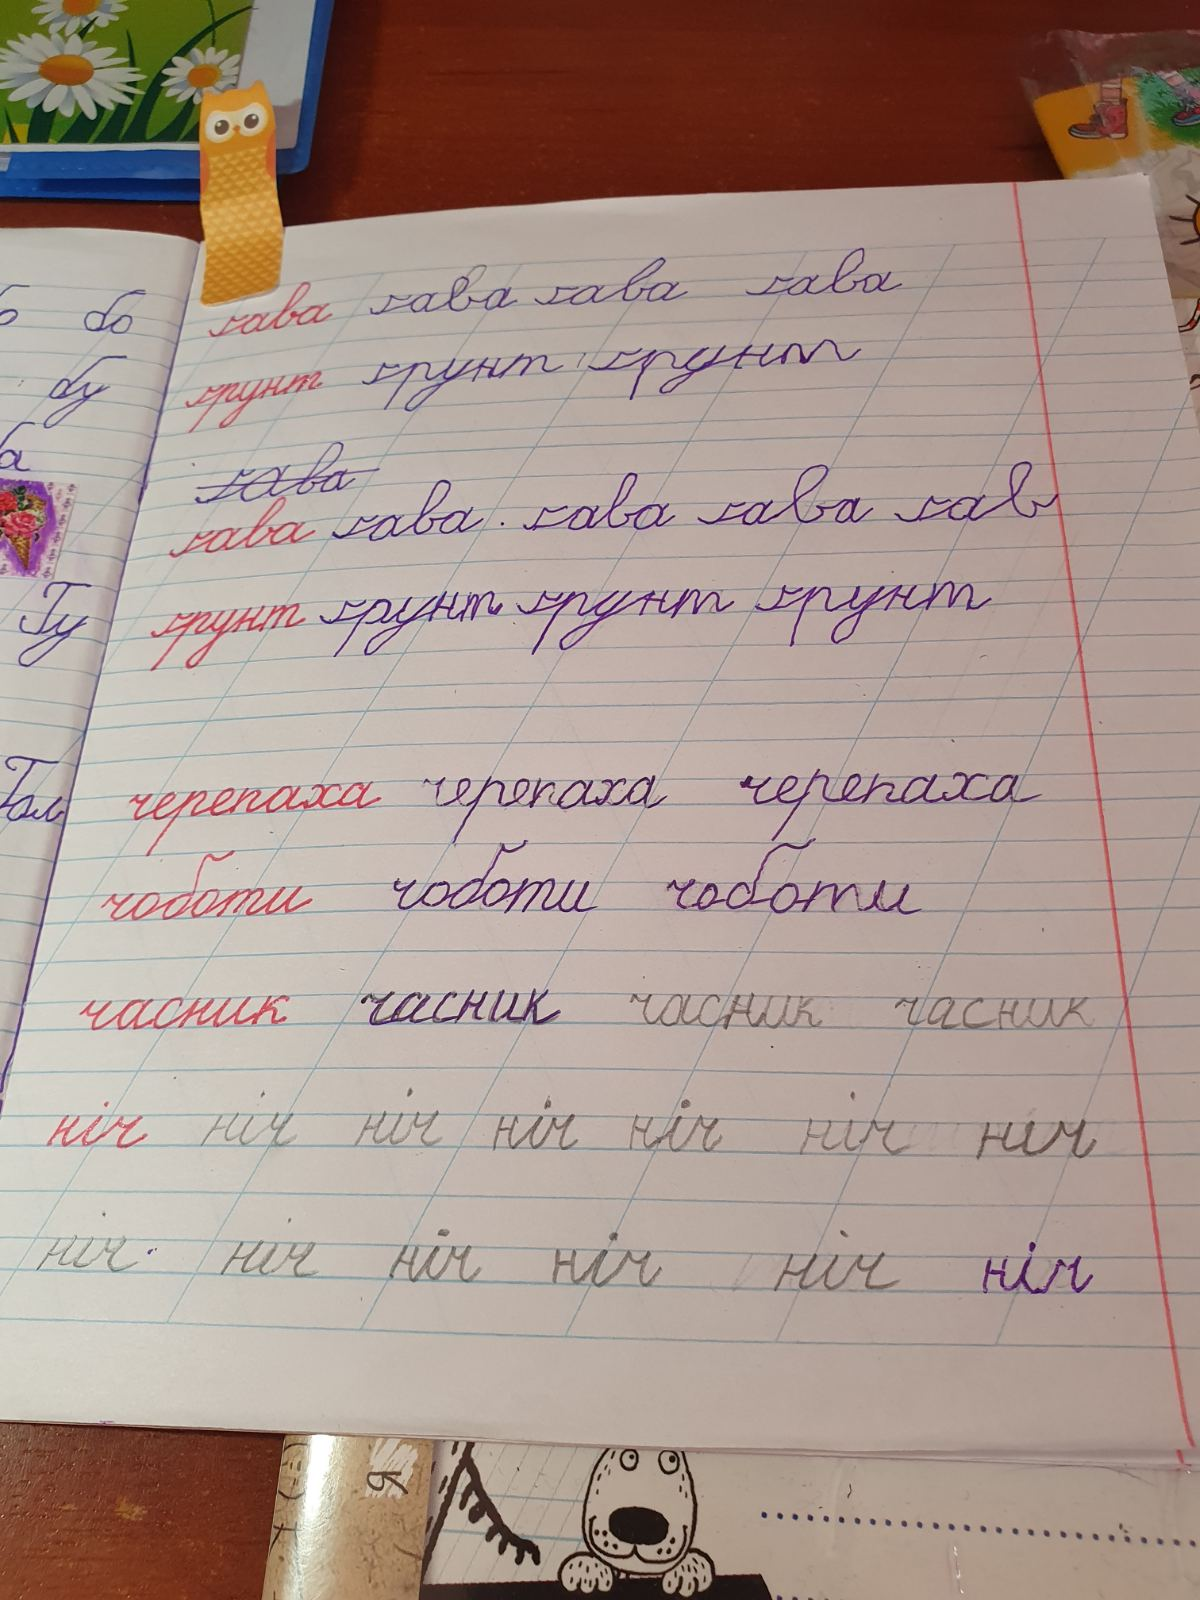 бо ґава ґава ґава ґава
бу ґрунт ґрунт ґрунт
ґава
ґава ґава ґава ґава ґав
Гу ґрунт ґрунт ґрунт ґрунт
черепаха черепаха черепаха
чоботи чоботи чоботи
часник часник часник часник
ніч ніч ніч ніч ніч ніч ніч
ніч ніч ніч ніч ніч ніч